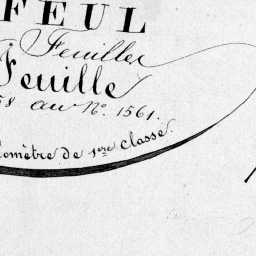 FEUL
Feuilles
Feuille
58 au N°. 1561.
omètre de 1ère Classe.